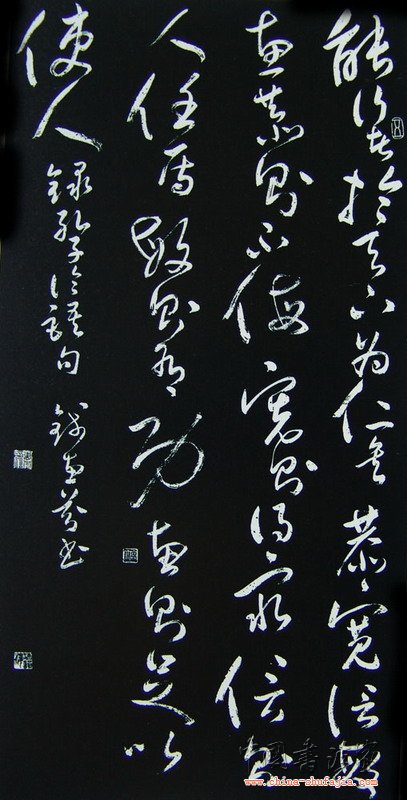 能行五者於天下為仁矣恭寬信敏
惠恭則不侮寬則得眾信則
人任焉敏則有功惠則足以
使人 錄孔子論語句 書
中国书法家
www.china-shufajia.com